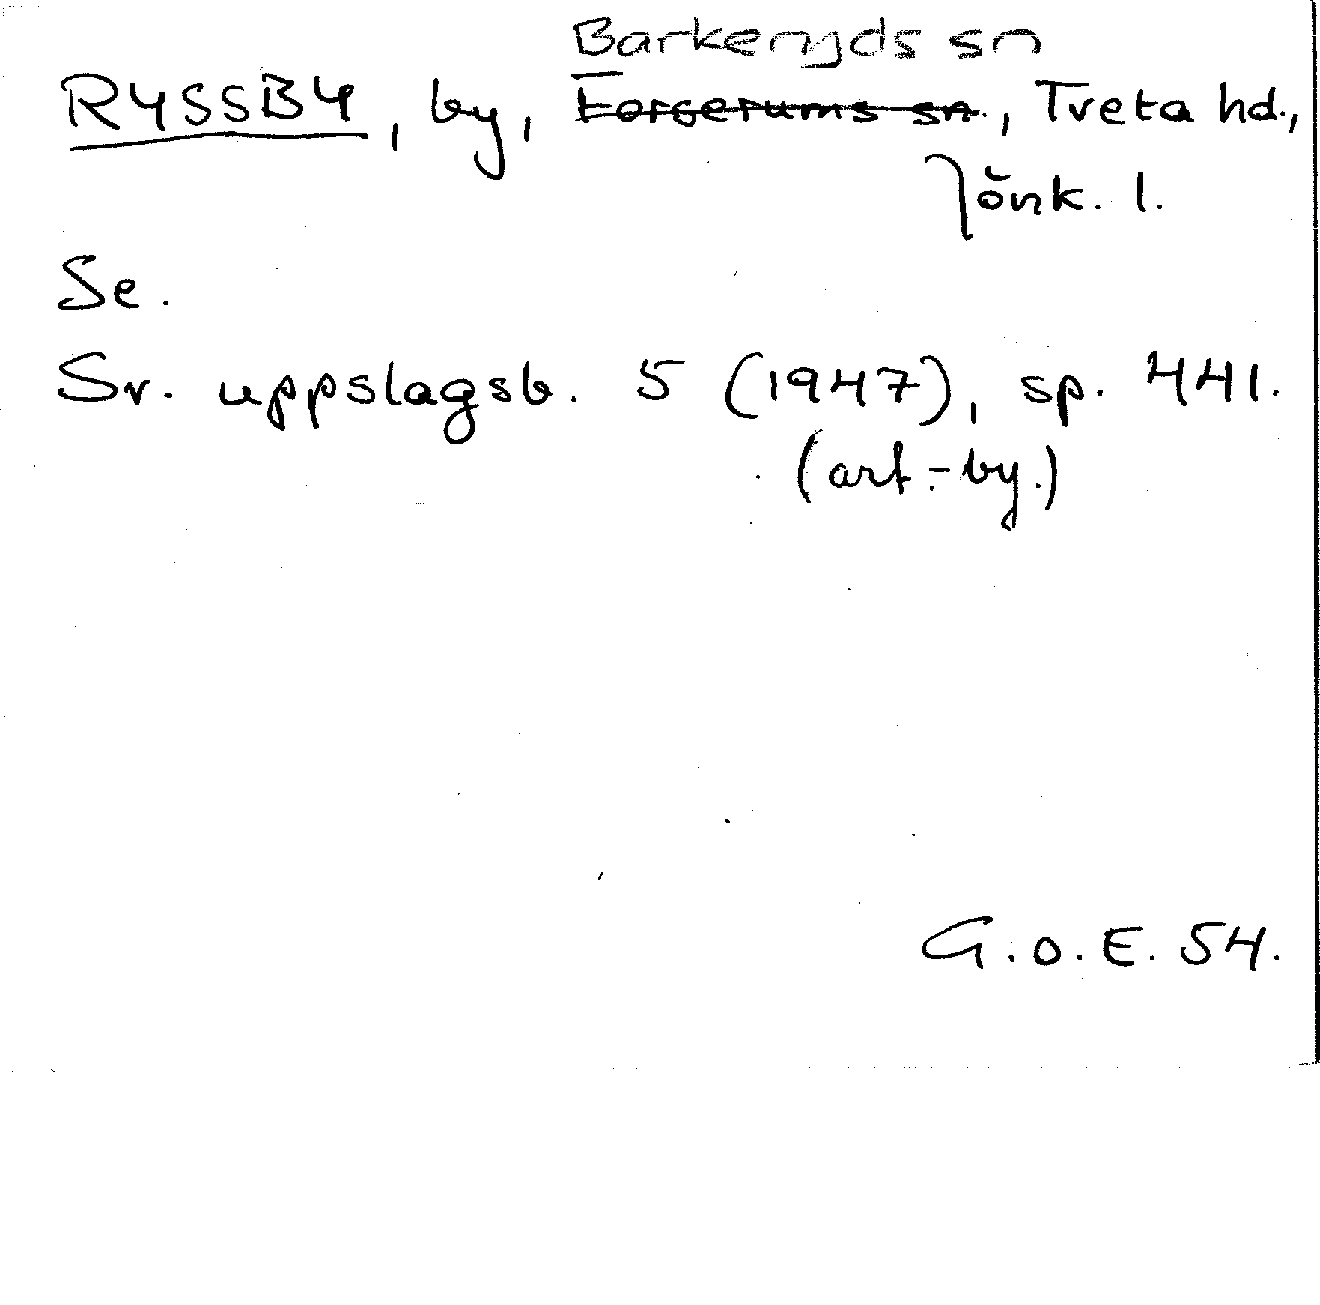 Barkeryds sn
RYSSBY, by, Forserums sn., Tveta hd.,
Jönk. l.
Se.
Sv. uppslagsb. 5 (1947), sp. 441.
(art. -by.)
G.O.E. 54.